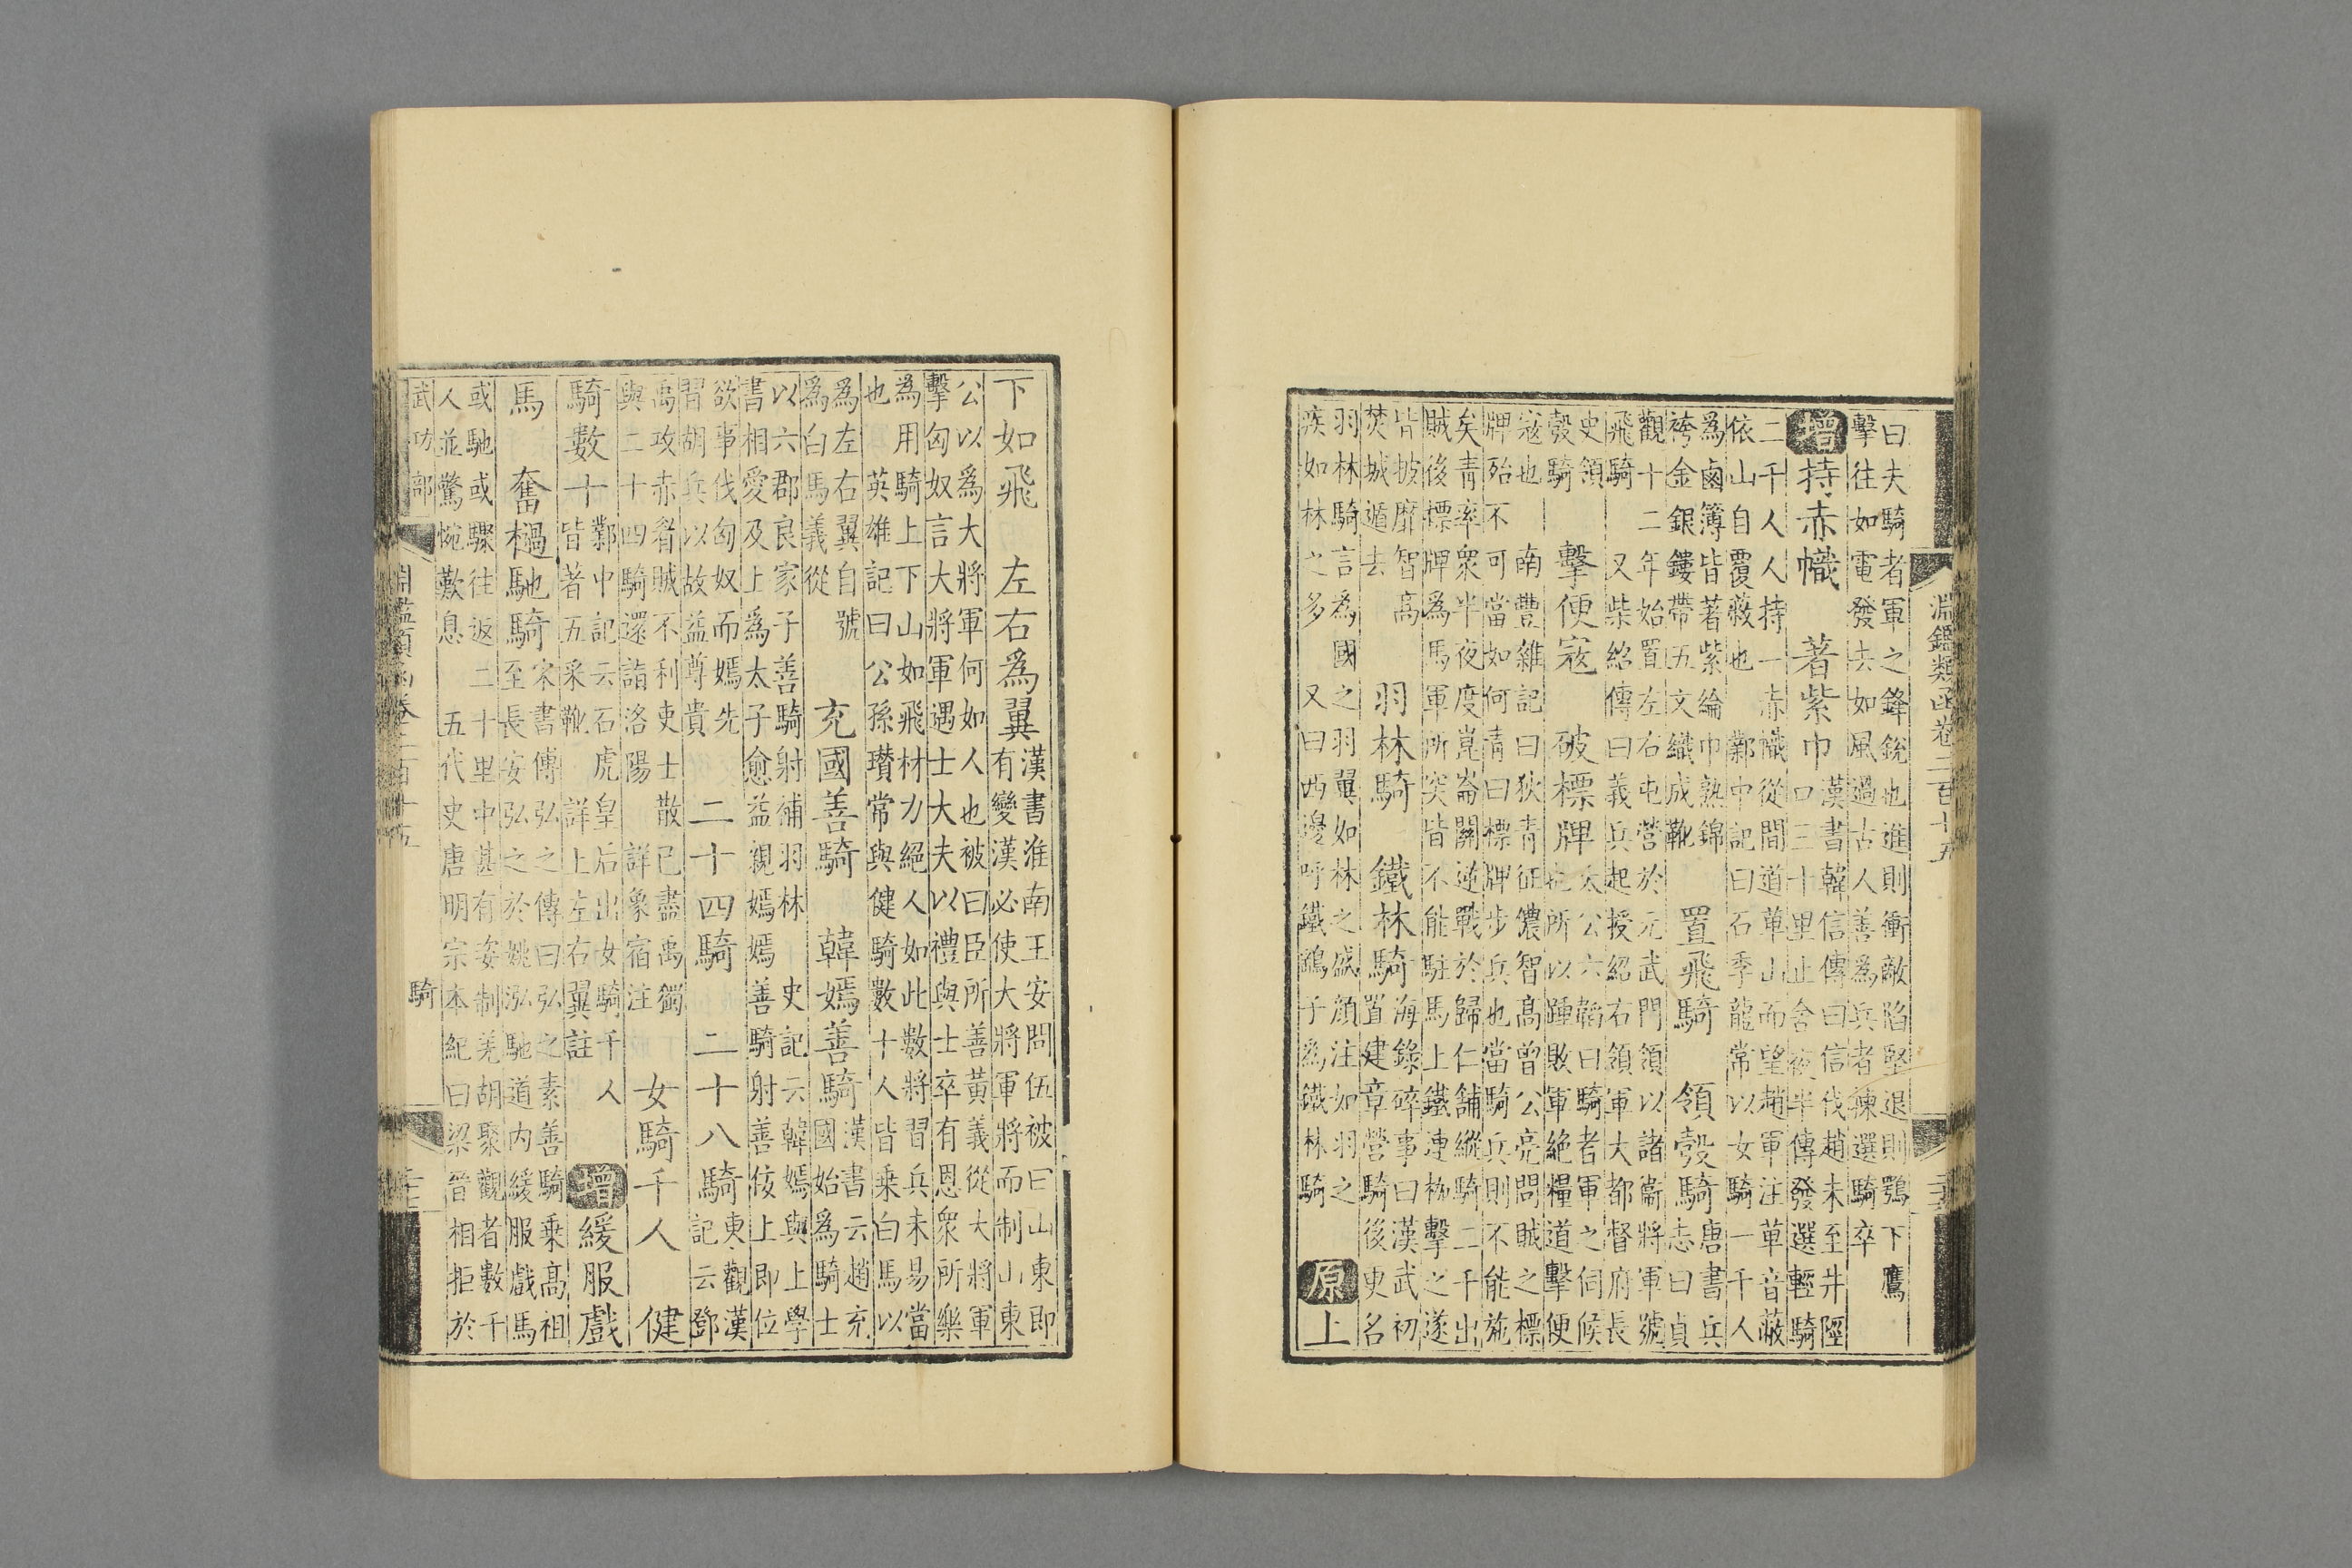 淵鑑類函卷二百十五
曰夫騎者軍之鋒銳也進則衝敵陷堅退則鶚下鷹
擊往如電發去如風過古人善為兵者練選騎卒
增持赤幟　著紫巾
漢書韓信傳曰信伐趙未至井陘
口三十里止舍夜半傳發選輕騎
二千人人持一赤幟從間道萆山而望趙軍注萆音蔽
依山自覆蔽也　鄴中記曰石季龍常以女騎一千人
為鹵簿皆著紫綸巾熟錦
袴金銀鏤帶五文織成靴
置飛騎　領彀騎
唐書兵
志曰貞
觀十二年始置左右屯營於元武門領以諸衞將軍號
飛騎　又柴紹傳曰義兵起授紹右領軍大都督府長
史領
彀騎
擊便寇　破標牌
太公六韜曰騎者軍之伺候
也所以踵敗軍絕糧道擊便
寇也　南豐雜記曰狄青征儂智高曾公亮問賊之標
牌殆不可當如何青曰標牌步兵也當騎兵則不能施
矣青率衆半夜度崑崙關逆戰於歸仁舖縱騎二千出
賊後標牌為馬軍所突皆不能駐馬上鐵連枷擊之遂
皆披靡智高
焚城遁去
羽林騎　鐵林騎
海錄碎事曰漢武初
置建章營騎後更名
羽林騎言為國之羽翼如林之盛顏注如羽之
疾如林之多　又曰西邊呼鐵鷂子為鐵林騎
原上
下如飛　左右為翼
漢書淮南王安問伍被曰山東即
有變漢必使大將軍將而制山東
公以為大將軍何如人也被曰臣所善黃義從大將軍
擊匈奴言大將軍遇士大夫以禮與士卒有恩衆所樂
為用騎上下山如飛材力絕人如此數將習兵未易當
也　英雄記曰公孫瓚常與健騎數十人皆乗白馬以
為左右翼自號
為白馬義從
充國善騎　韓嫣善騎
漢書云趙充
國始為騎士
以六郡良家子善騎射補羽林　史記云韓嫣與上學
書相愛及上為太子愈益親嫣嫣善騎射善佞上即位
欲事伐匈奴而嫣先
習胡兵以故益尊貴
二十四騎　二十八騎
東觀漢
記云鄧
禹攻赤眉賊不利吏士散已盡禹獨
與二十四騎還詣洛陽　詳象宿注
女騎千人　健
騎數十
鄴中記云石虎皇后出女騎千人
皆著五采靴　詳上左右翼註
增緩服戲
馬　奮檛馳騎
宋書傅弘之傳曰弘之素善騎乗高祖
至長安弘之於姚泓馳道内緩服戲馬
或馳或驟往返二十里中甚有姿制羌胡聚觀者數千
人並驚惋歎息　五代史唐明宗本紀曰梁晉相拒於
武功部　騎
淵鑑類函卷二百十五